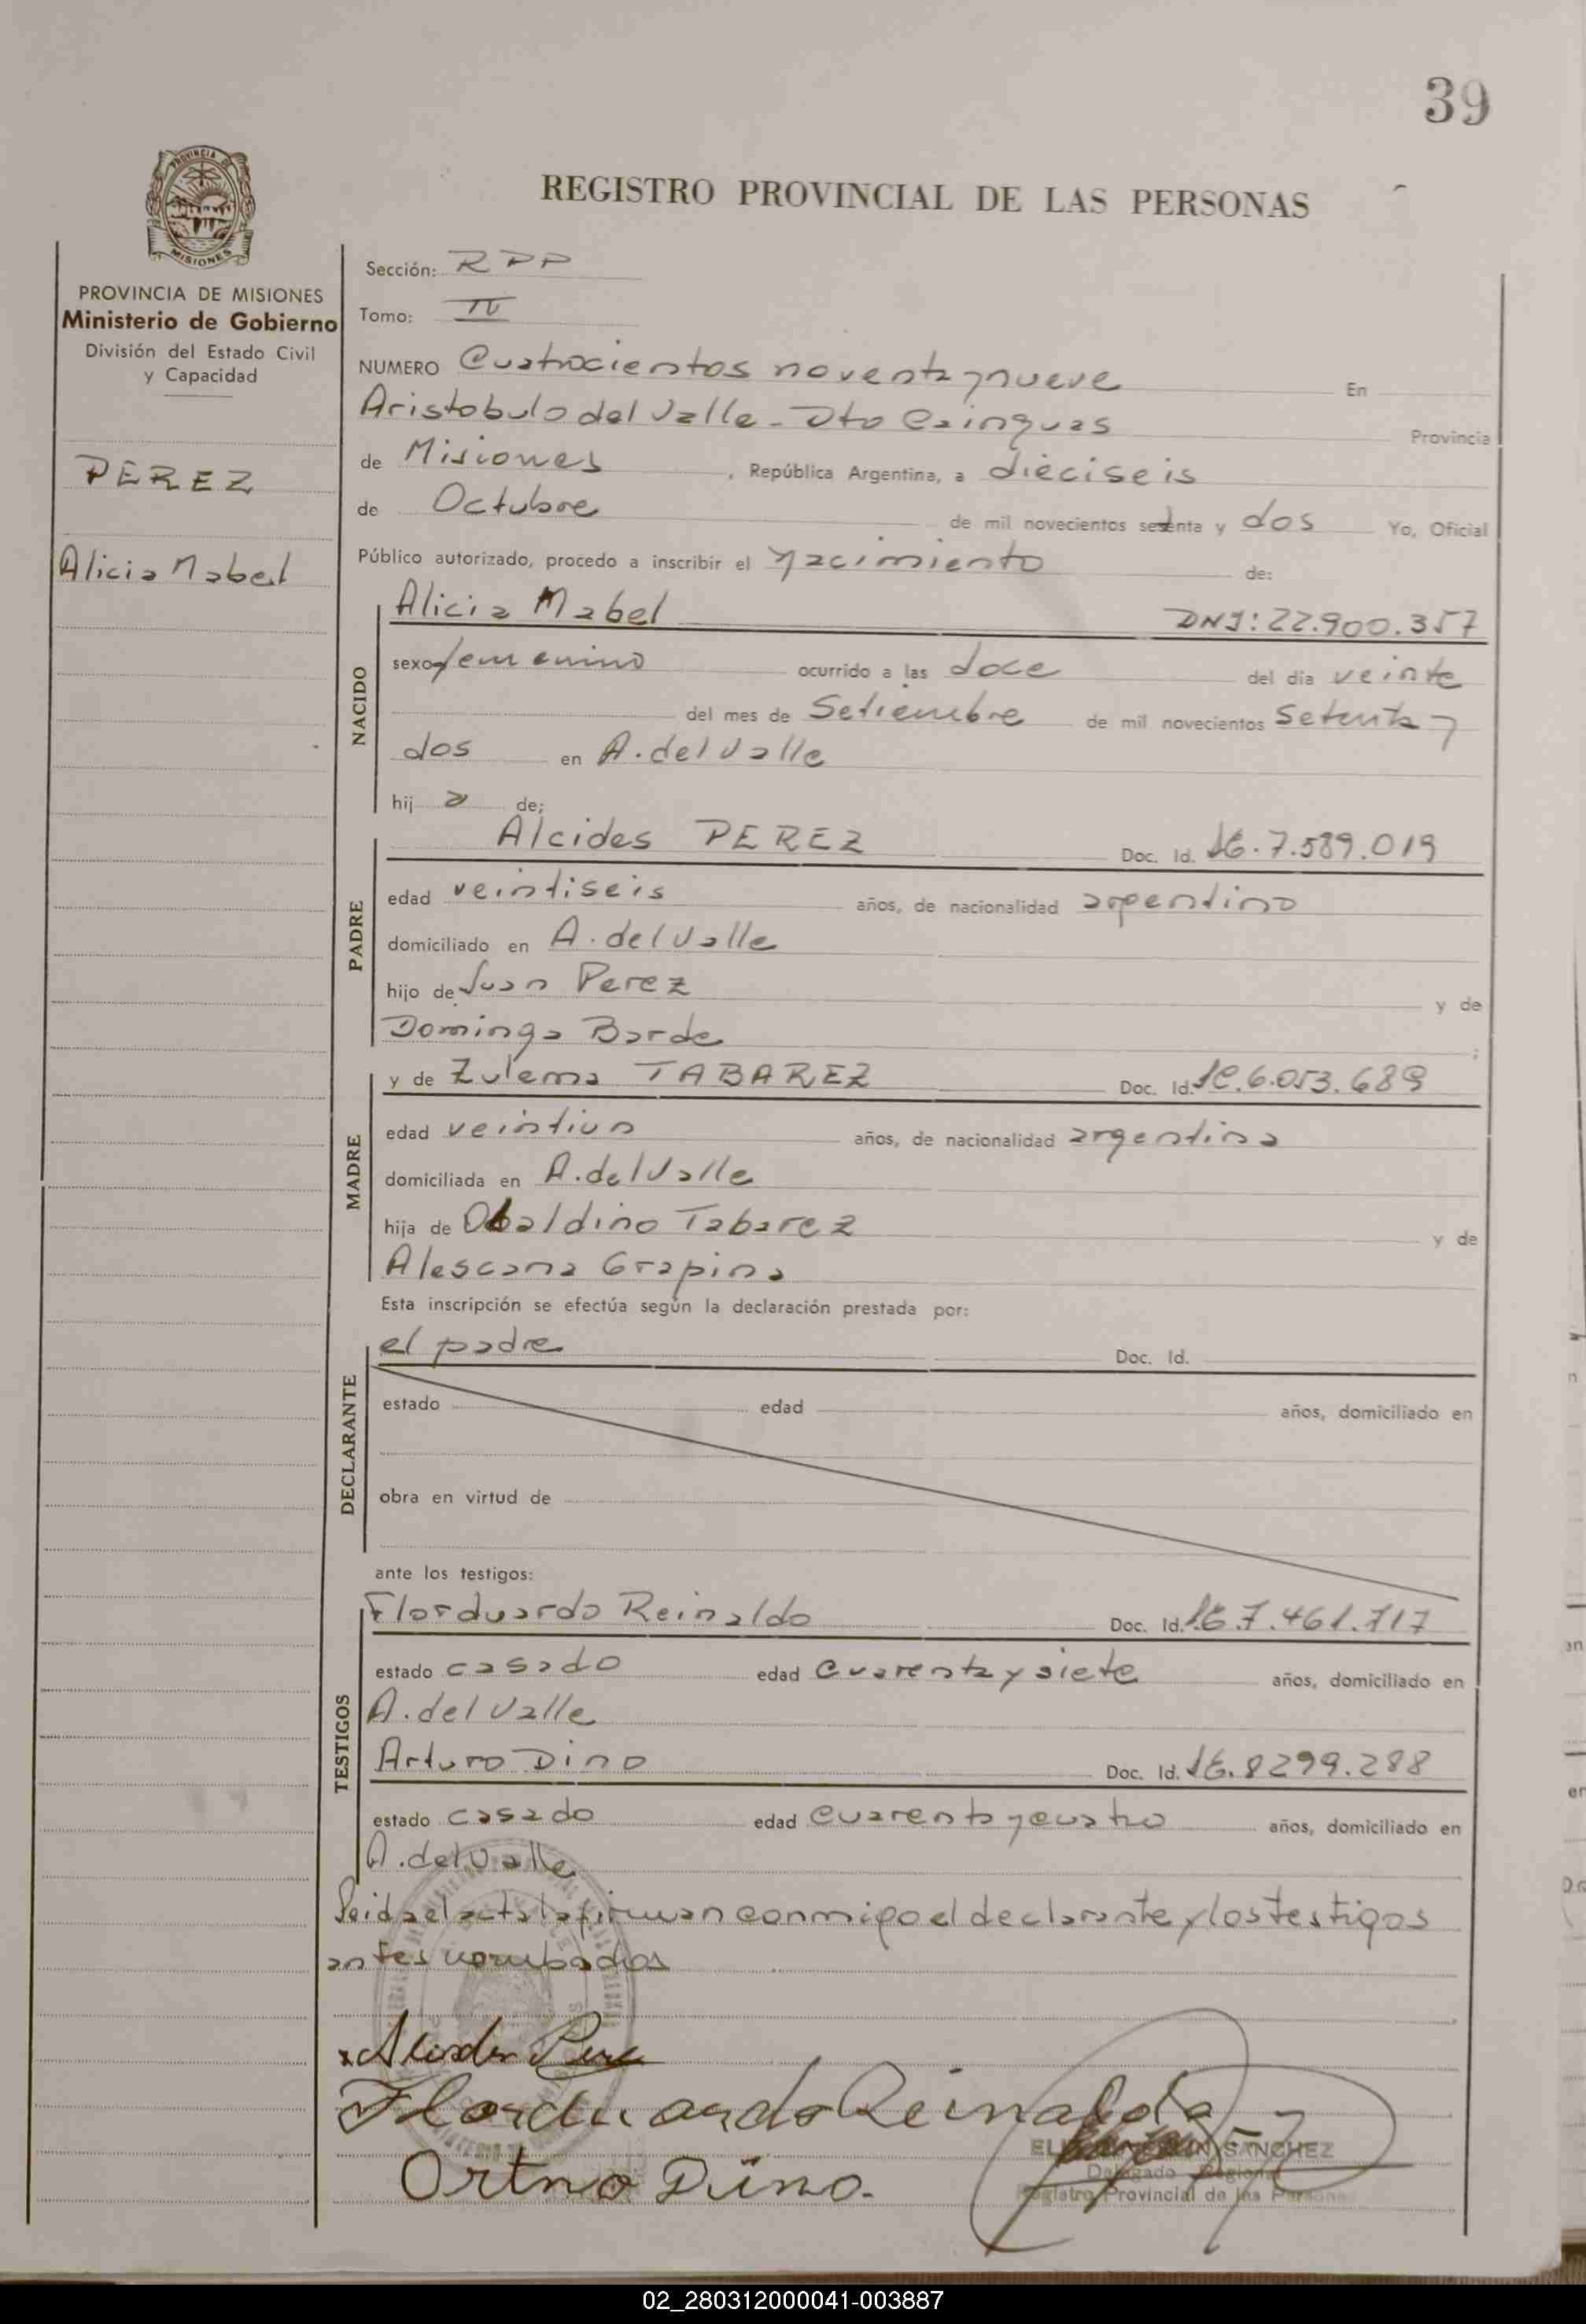 39
PROVINCIA DE MISIONES
REGISTRO PROVINCIAL DE LAS PERSONAS
PROVINCIA DE MISIONES
Ministerio de Gobierno
División del Estado Civil
y Capacidad
PEREZ
Alicia Mabel
Sección: RPP
Tomo: IV
NUMERO Cuatrocientos noventa y nueve En
Aristobulo del Valle - Dto Cainguas Provincia
de Misiones, República Argentina, a dieciseis
de Octubre de mil novecientos setenta y dos Yo, Oficial
Público autorizado, procedo a inscribir el nacimiento de:
NACIDO
Alicia Mabel DNI: 22.900.357
sexo femenino ocurrido a las doce del día veinte
del mes de Setiembre de mil novecientos setenta y
dos en A. del Valle
hij a de;
PADRE
Alcides PEREZ Doc. Id. 7.589.019
edad veintiseis años, de nacionalidad argentino
domiciliado en A. del Valle
hijo de Juan Perez y de
Dominga Barde ;
MADRE
y de Zulema TABAREZ Doc. Id. 6.053.689
edad veintiun años, de nacionalidad argentina
domiciliada en A. del Valle
hija de Obaldino Tabarez y de
Alescana Grapina
Esta inscripción se efectúa según la declaración prestada por:
DECLARANTE
el padre Doc. Id.
estado edad años, domiciliado en
obra en virtud de
ante los testigos:
TESTIGOS
Florduardo Reinaldo Doc. Id. 7.461.717
estado casado edad cuarenta y siete años, domiciliado en
A. del Valle
Arturo Dino Doc. Id. 8299.288
estado casado edad cuarenta y cuatro años, domiciliado en
A. del Valle
Leida el acta la firman conmigo el declarante y los testigos
antes nombados
Florduardo Reinaldo
Dino.
SANCHEZ
Delegado Regional
Registro Provincial de las Personas
02_280312000041-003887